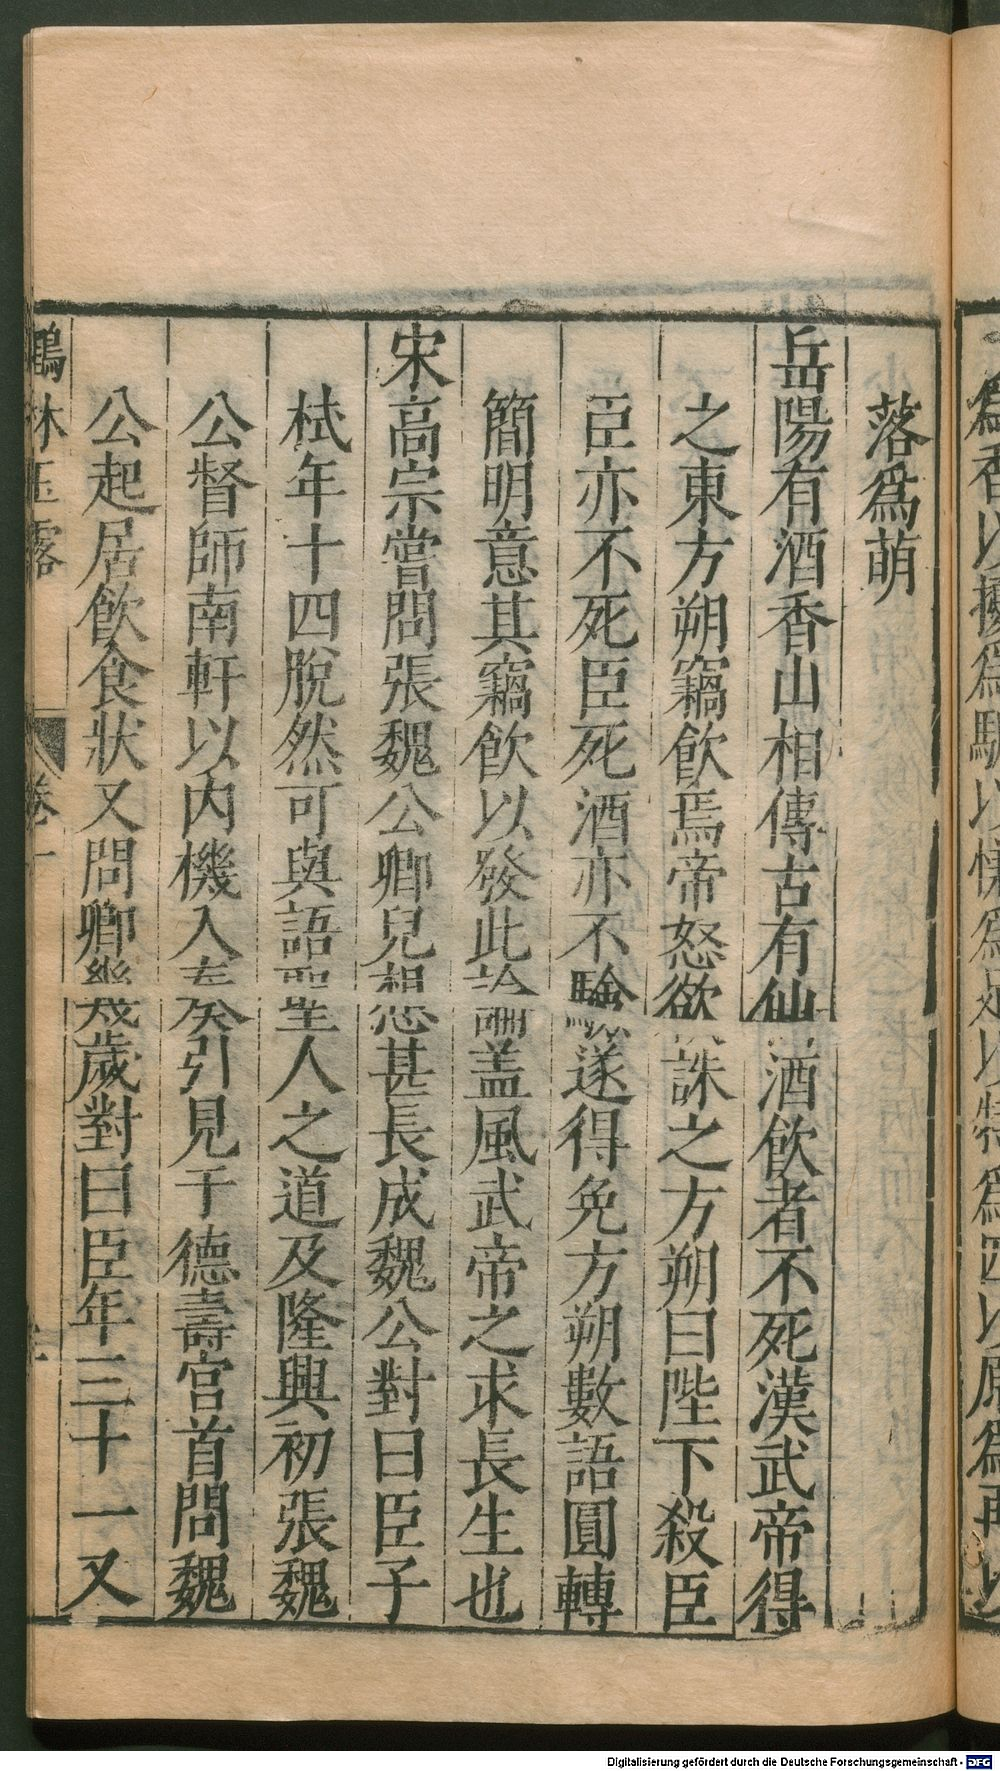 落爲萌
岳陽有酒香山相傳古有仙酒飲者不死漢武帝得
之東方朔竊飲焉帝怒欲誅之方朔曰陛下殺臣
臣亦不死臣死酒亦不驗遂得免方朔數語圓轉
簡明意其竊飲以發此論盖風武帝之求長生也
宋高宗嘗問張魏公卿兒想甚長成魏公對曰臣子
栻年十四脫然可與語聖人之道及隆興初張魏
公督師南軒以内機入奏引見于德壽宮首問魏
公起居飲食狀又問卿幾歲對曰臣年三十一又
鶴林玉露 卷一
Digitalisierung gefördert durch die Deutsche Forschungsgemeinschaft - DFG